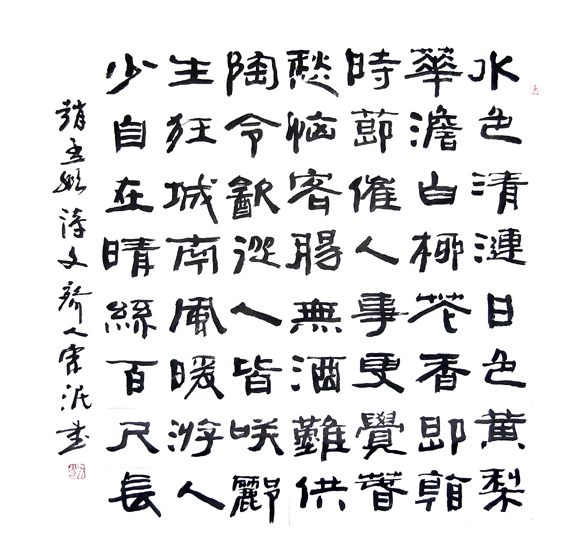 水色清漣日色黄梨
華澹白柳花香即看
時節催人事更覺春
愁惱客腸無酒難供
陶令飲從人皆咲酈
生狂城南風暖游人
少自在晴絲百尺長
趙孟頫詩文